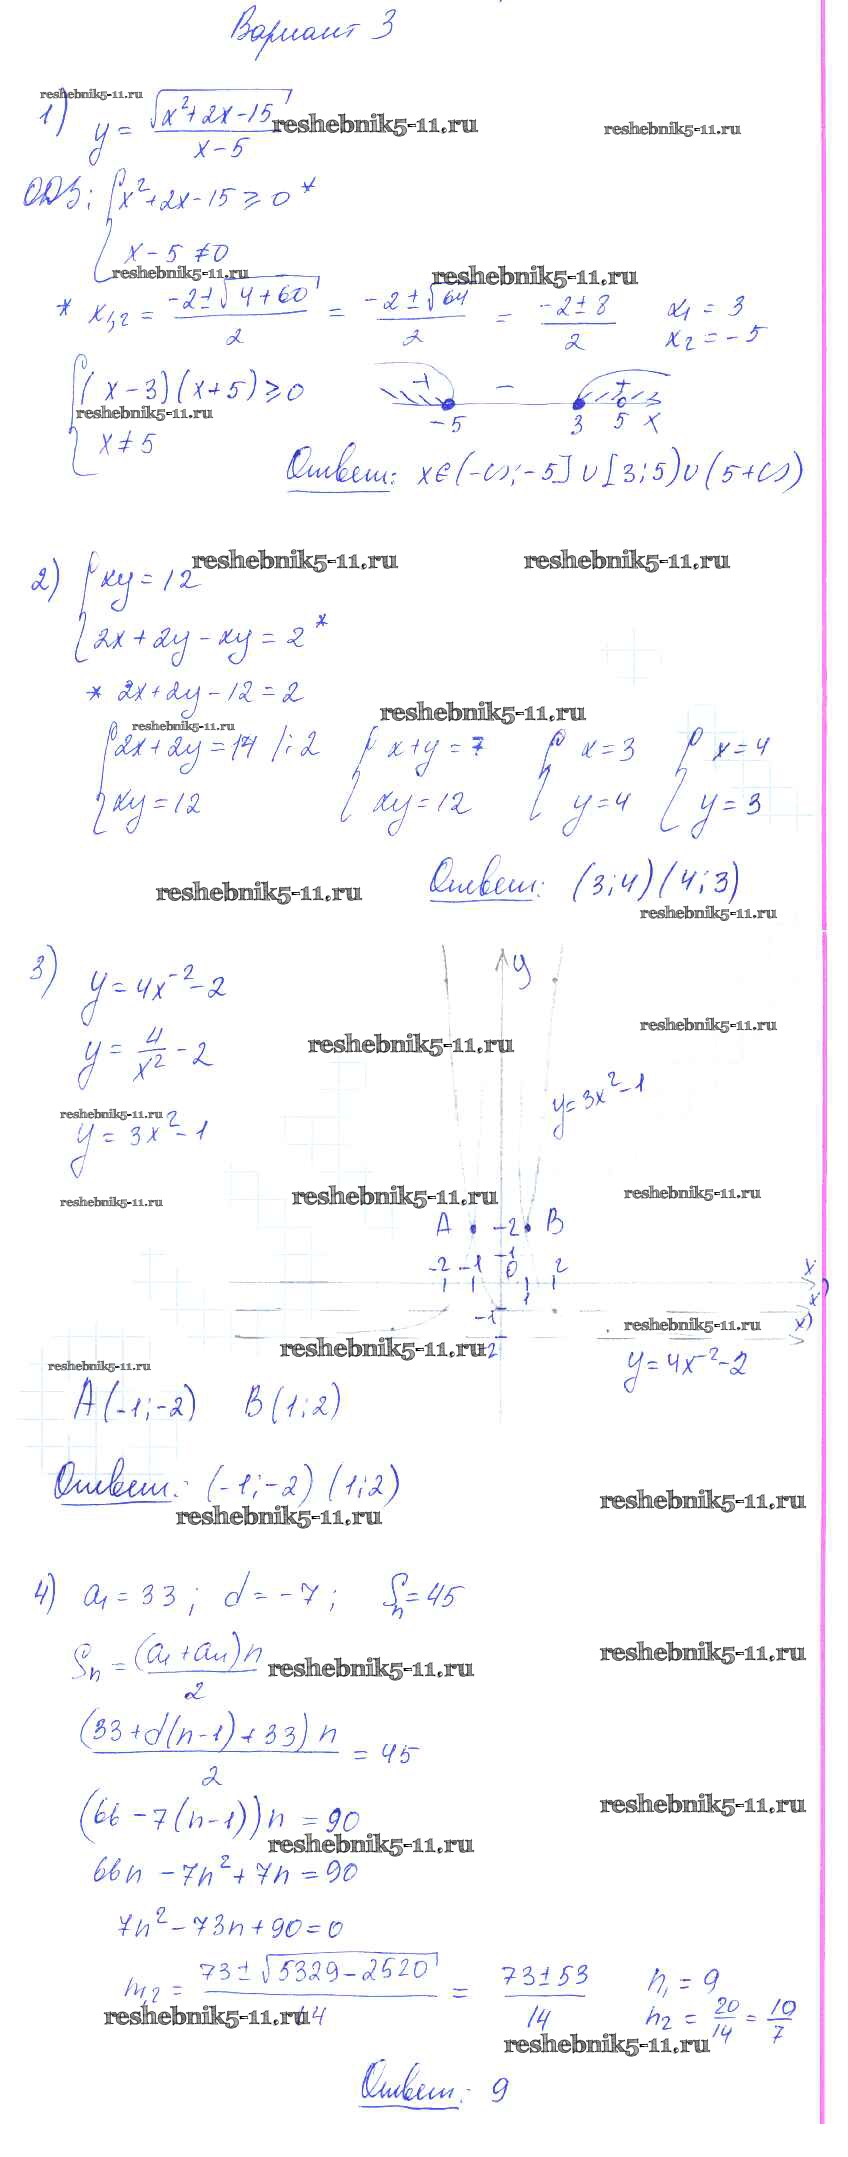 Вариант 3
reshebnik5-11.ru
1) y = √(x²+2x-15) / (x-5)
reshebnik5-11.ru
reshebnik5-11.ru
ОДЗ: { x²+2x-15 ≥ 0 *
x - 5 ≠ 0
reshebnik5-11.ru
reshebnik5-11.ru
* x1,2 = (-2±√(4+60)) / 2 = (-2±√64) / 2 = (-2±8) / 2 x1 = 3
x2 = -5
{ (x-3)(x+5) ≥ 0 + - +
reshebnik5-11.ru
x ≠ 5 -5 3 5 x
Ответ: x∈(-∞;-5]∪[3;5)∪(5+∞)
reshebnik5-11.ru
reshebnik5-11.ru
2) { xy = 12
2x+2y-xy = 2 *
* 2x+2y-12 = 2
reshebnik5-11.ru
reshebnik5-11.ru
{ 2x+2y = 14 /:2 { x+y = 7 { x = 3 { x = 4
xy = 12 xy = 12 y = 4 y = 3
reshebnik5-11.ru
Ответ: (3;4)(4;3)
reshebnik5-11.ru
3) y = 4x⁻²-2 y
reshebnik5-11.ru
y = 4/x² - 2
reshebnik5-11.ru
y = 3x²-1
reshebnik5-11.ru
y = 3x²-1
reshebnik5-11.ru
reshebnik5-11.ru
reshebnik5-11.ru
A -2 B
-1
-2 -1 0 2 x
1 x'
-1 x'
reshebnik5-11.ru
reshebnik5-11.ru
-2
reshebnik5-11.ru
y = 4x⁻²-2
A(-1;-2) B(1;2)
Ответ: (-1;-2) (1;2)
reshebnik5-11.ru
reshebnik5-11.ru
4) a1 = 33; d = -7; Sn = 45
reshebnik5-11.ru
Sn = (a1+an)n / 2
reshebnik5-11.ru
(33+d(n-1)+33)n / 2 = 45
reshebnik5-11.ru
(66-7(n-1))n = 90
reshebnik5-11.ru
66n - 7n²+7n = 90
7n²-73n+90 = 0
n1,2 = (73±√(5329-2520)) / 14 = (73±53) / 14 n1 = 9
n2 = 20/14 = 10/7
reshebnik5-11.ru
reshebnik5-11.ru
Ответ: 9